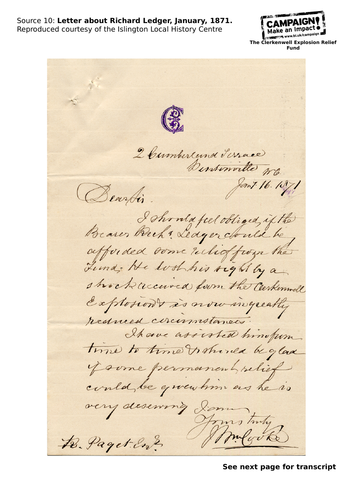 Source 10: Letter about Richard Ledger, January, 1871.
Reproduced courtesy of the Islington Local History Centre
CAMPAIGN!
Make an Impact
The Clerkenwell Explosion Relief
Fund
2 Cumberland Terrace
Pentonville WC
Jany 16. 1871
Dear Sir.
I should feel obliged if the
Bearer Richd. Ledger could be
afforded some relief from the
Fund; He lost his sight by a
shock received from the Clerkenwell
Explosion & is now in greatly
reduced circumstances
I have assisted him from
time to time & should be glad
if some permanent relief
could be given him as he is
very deserving I am
Yours truly
Wm. Cooke
R. Paget Esqr.
See next page for transcript